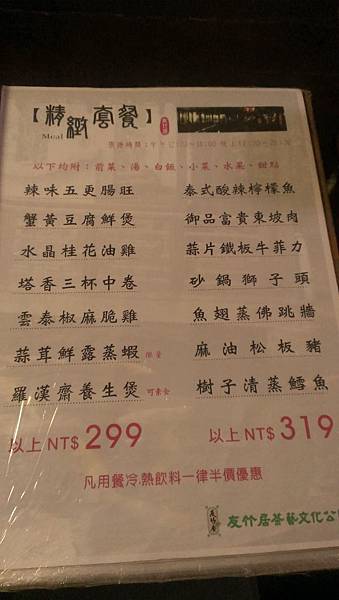 【精緻套餐】
Meal
以下均附：前菜、湯、白飯、小菜、水果、甜點
辣味五更腸旺
蟹黃豆腐鮮煲
水晶桂花油雞
塔香三杯中卷
雲泰椒麻脆雞
蒜茸鮮露蒸蝦 限量
羅漢齋養生煲 可素食
以上 NT$ 299
泰式酸辣檸檬魚
御品富貴東坡肉
蒜片鐵板牛菲力
砂鍋獅子頭
魚翅蒸佛跳牆
麻油松板豬
樹子清蒸鱈魚
以上 NT$ 319
凡用餐冷.熱飲料一律半價優惠
友竹居茶藝文化公